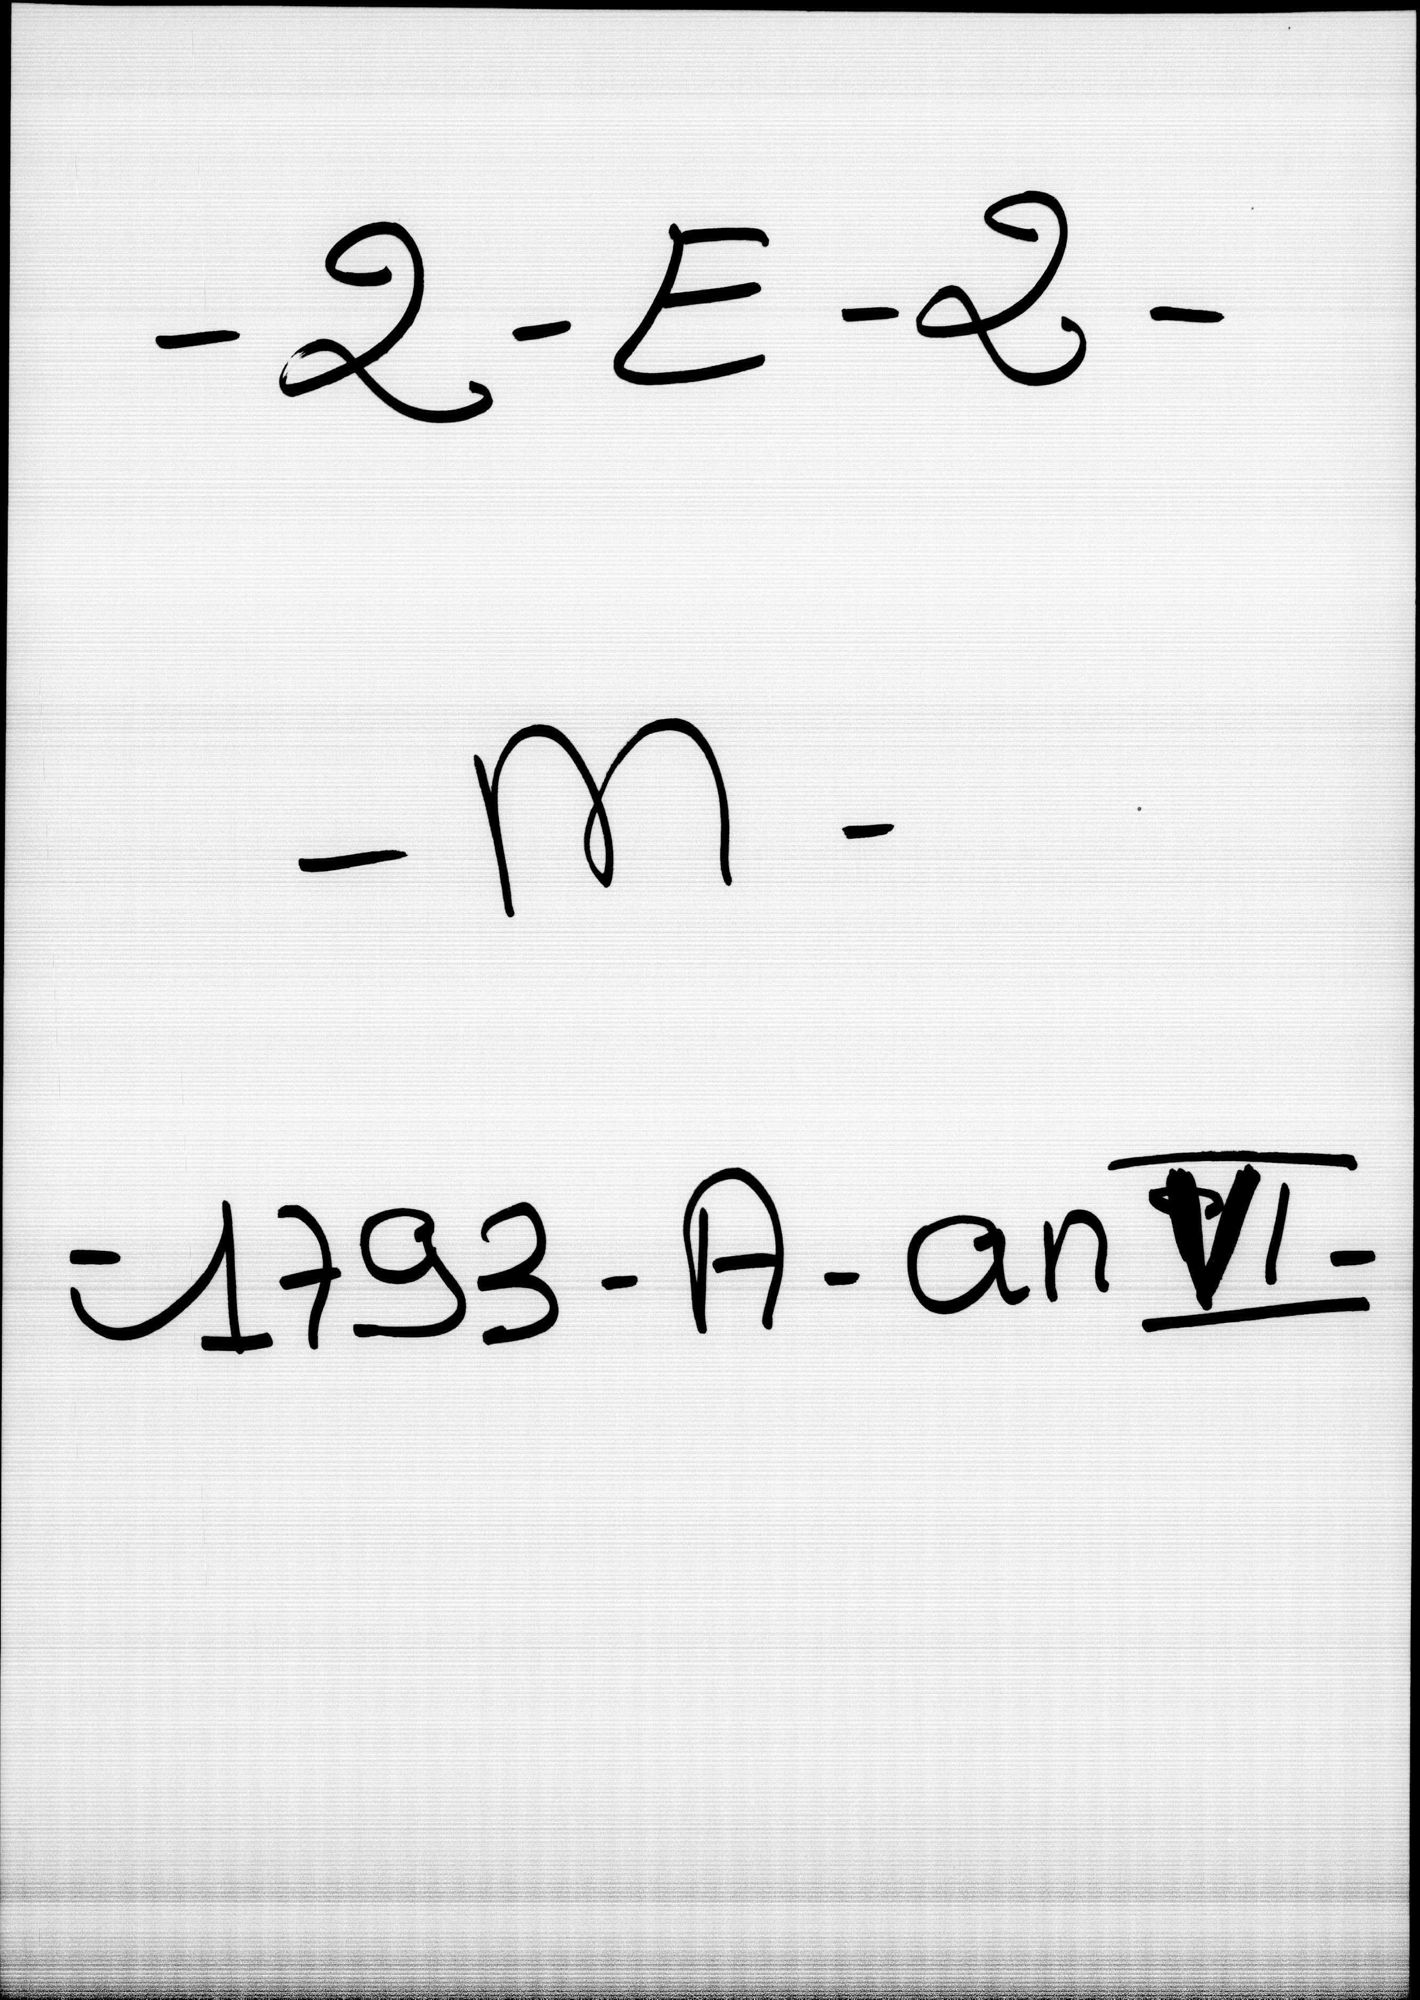 - 2 - E - 2 -
- M -
- 1793 - A - an VI -